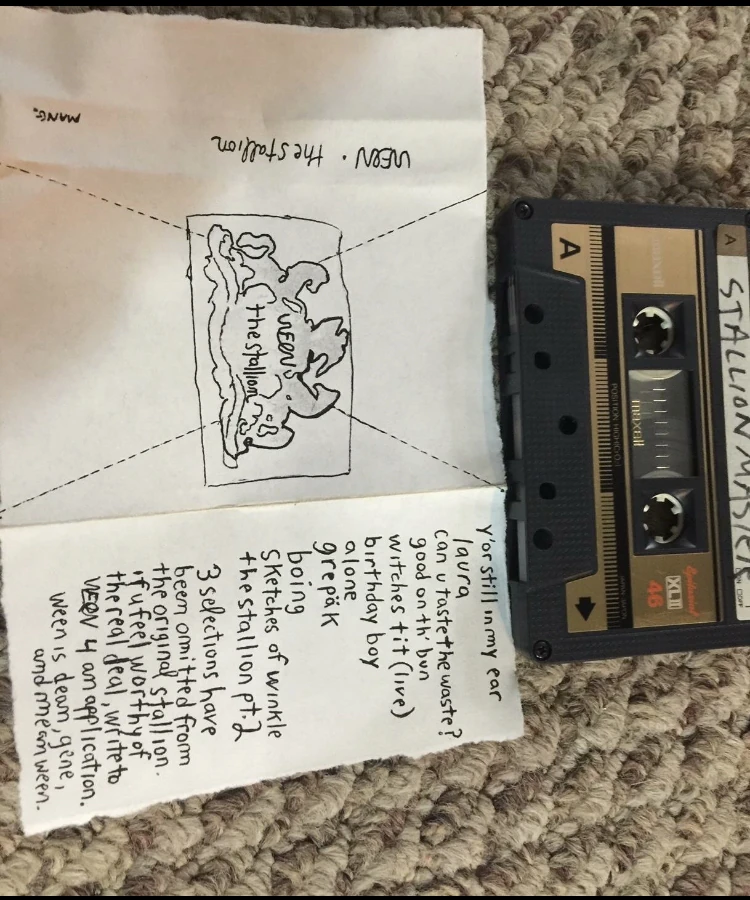 MANG.
WEEN · the stallion
WEEN
the stallion
y'or still in my ear
laura
can u taste the waste?
good on th' bun
witches tit (live)
birthday boy
alone
grepäk
boing
sketches of winkle
the stallion pt. 2
3 selections have
been ommitted from
the original stallion.
if u feel worthy of
the real deal, write to
WEEN 4 an application.
ween is deam, gene,
and mean ween.
A
maxell
POSITION HIGH
maxell
XLII
46
A
STALLION MASTER